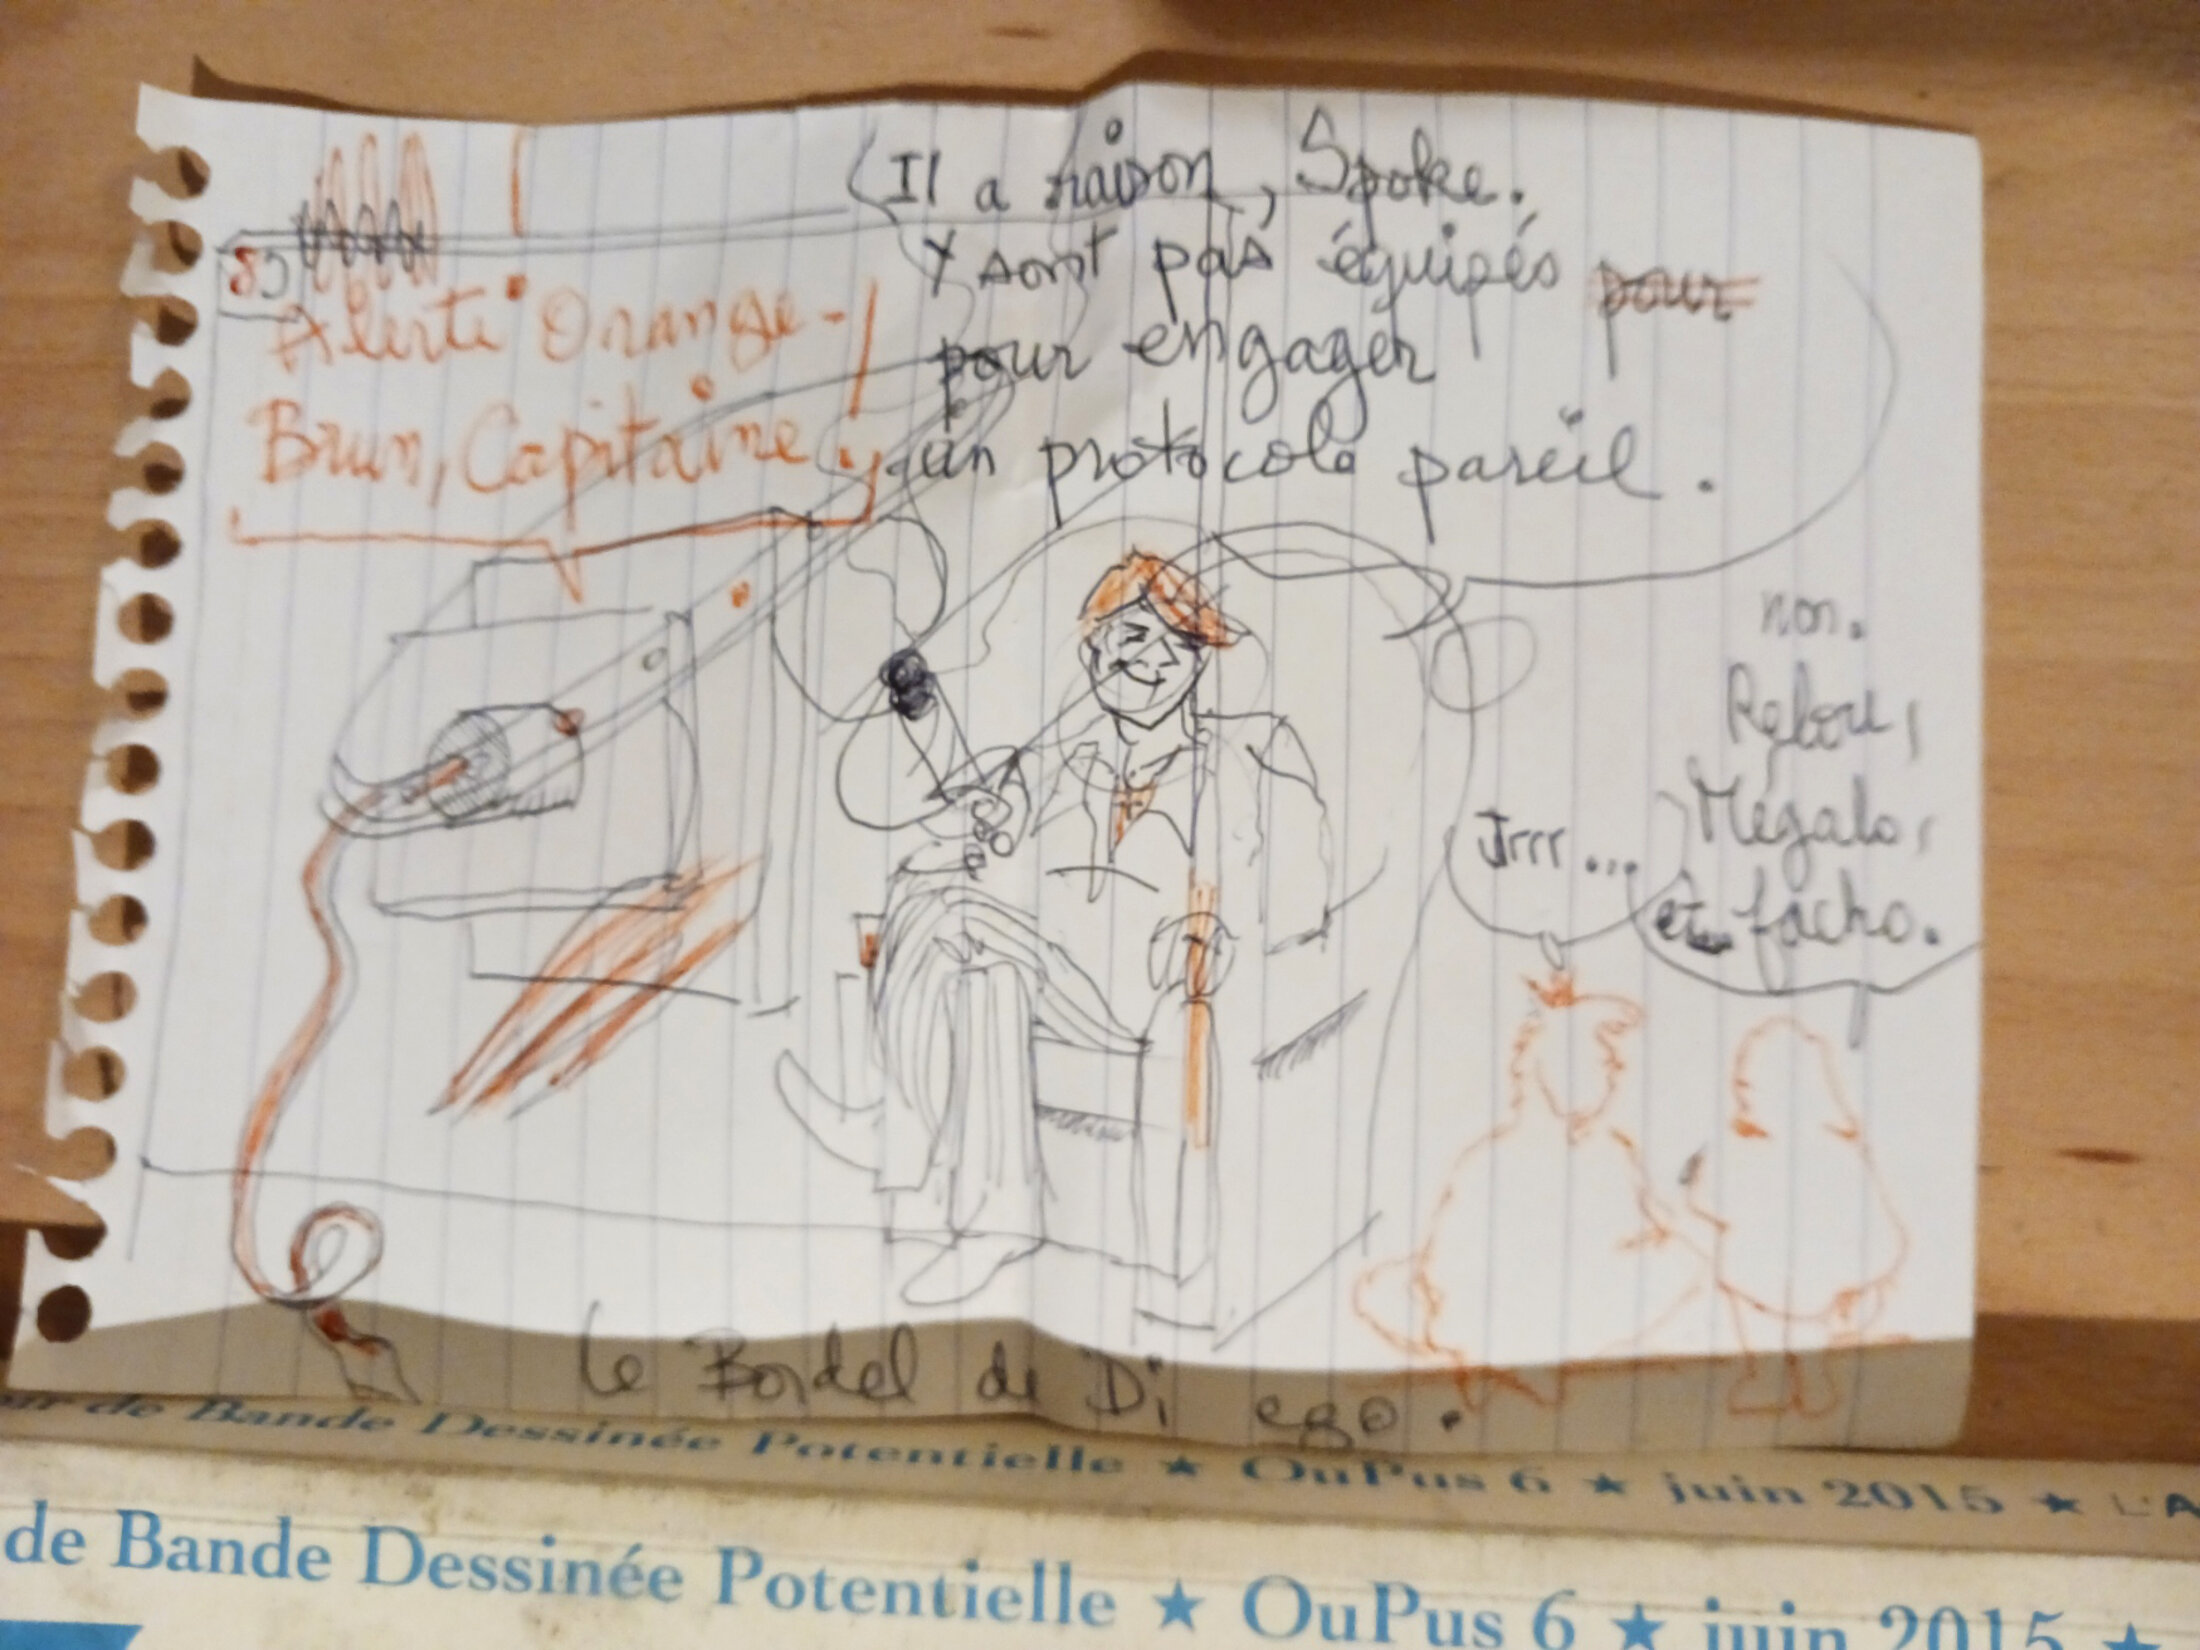 Il a raison, Spoke.
Y sont pas équipés pour
pour engager
un protocole pareil.
Alerte Orange-
Brun, Capitaine !
non.
Mégalo,
et facho.
Jrrr...
Le Bordel de Di ego.
de Bande Dessinée Potentielle ★ OuPus 6 ★ juin 2015 ★ L'A
de Bande Dessinée Potentielle ★ OuPus 6 ★ juin 2015 ★